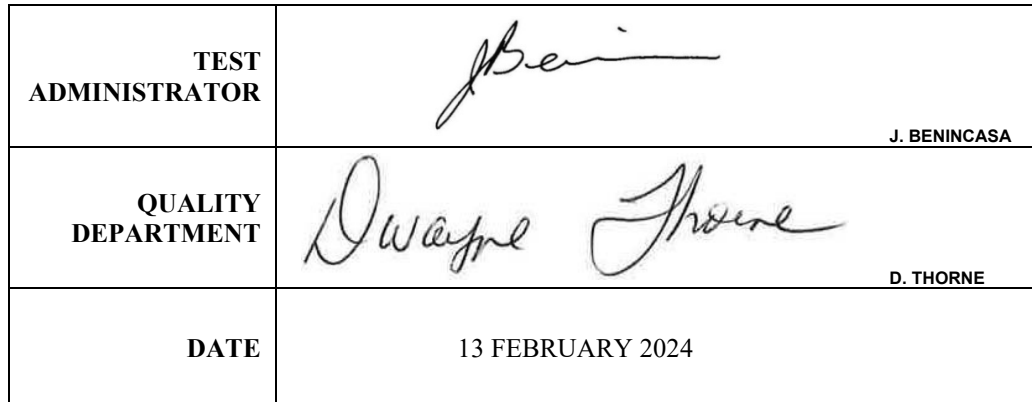 TEST
ADMINISTRATOR
JBeni
J. BENINCASA
QUALITY
DEPARTMENT
Dwayne Thorne
D. THORNE
DATE
13 FEBRUARY 2024